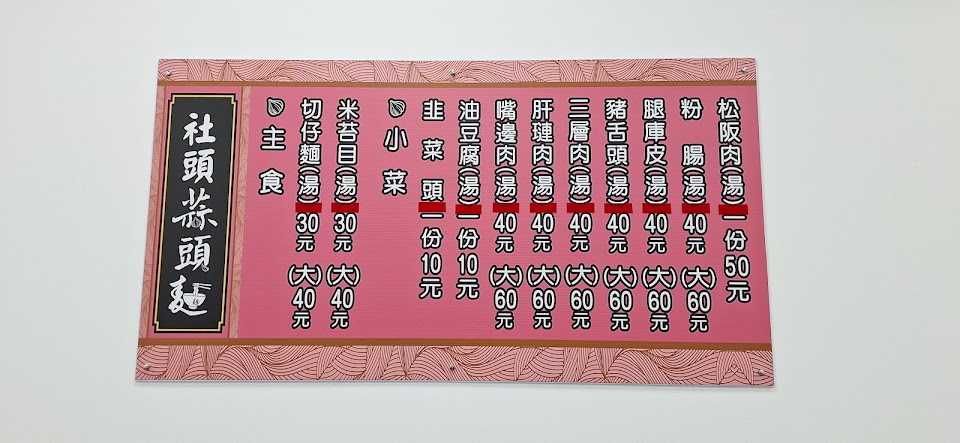 社頭蒜頭麵
主食
切仔麵(湯)30元 (大)40元
米苔目(湯)30元 (大)40元
小菜
韭菜頭 一份10元
油豆腐(湯)一份10元
嘴邊肉(湯)40元 (大)60元
肝璉肉(湯)40元 (大)60元
三層肉(湯)40元 (大)60元
豬舌頭(湯)40元 (大)60元
腿庫皮(湯)40元 (大)60元
粉腸(湯)40元 (大)60元
松阪肉(湯)一份50元